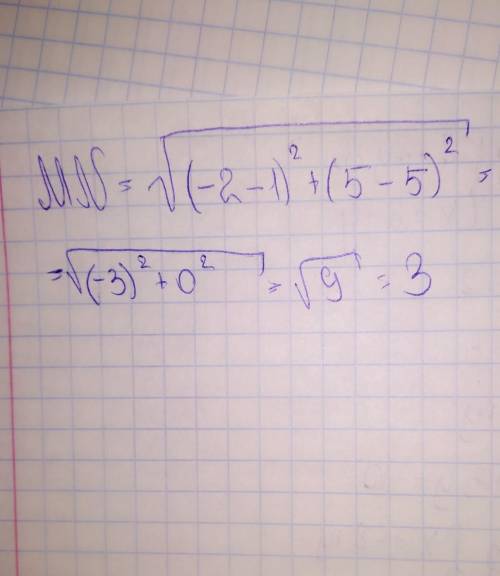 MN = √(-2-1)² + (5-5)² =
= √(-3)² + 0² = √9 = 3